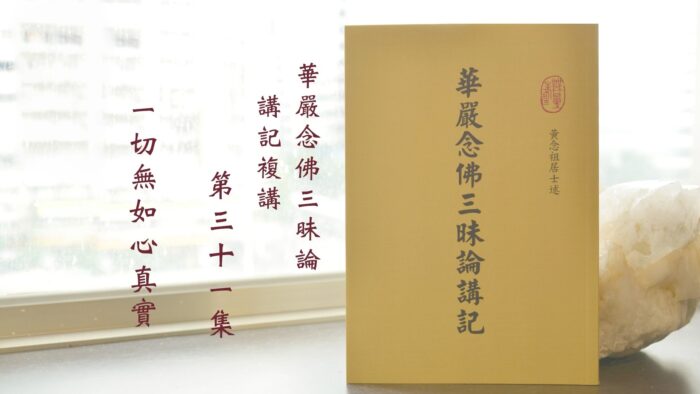 華嚴念佛三昧論
講記複講
第三十一集
一切無如心真實
黃念祖居士述
華嚴念佛三昧論講記